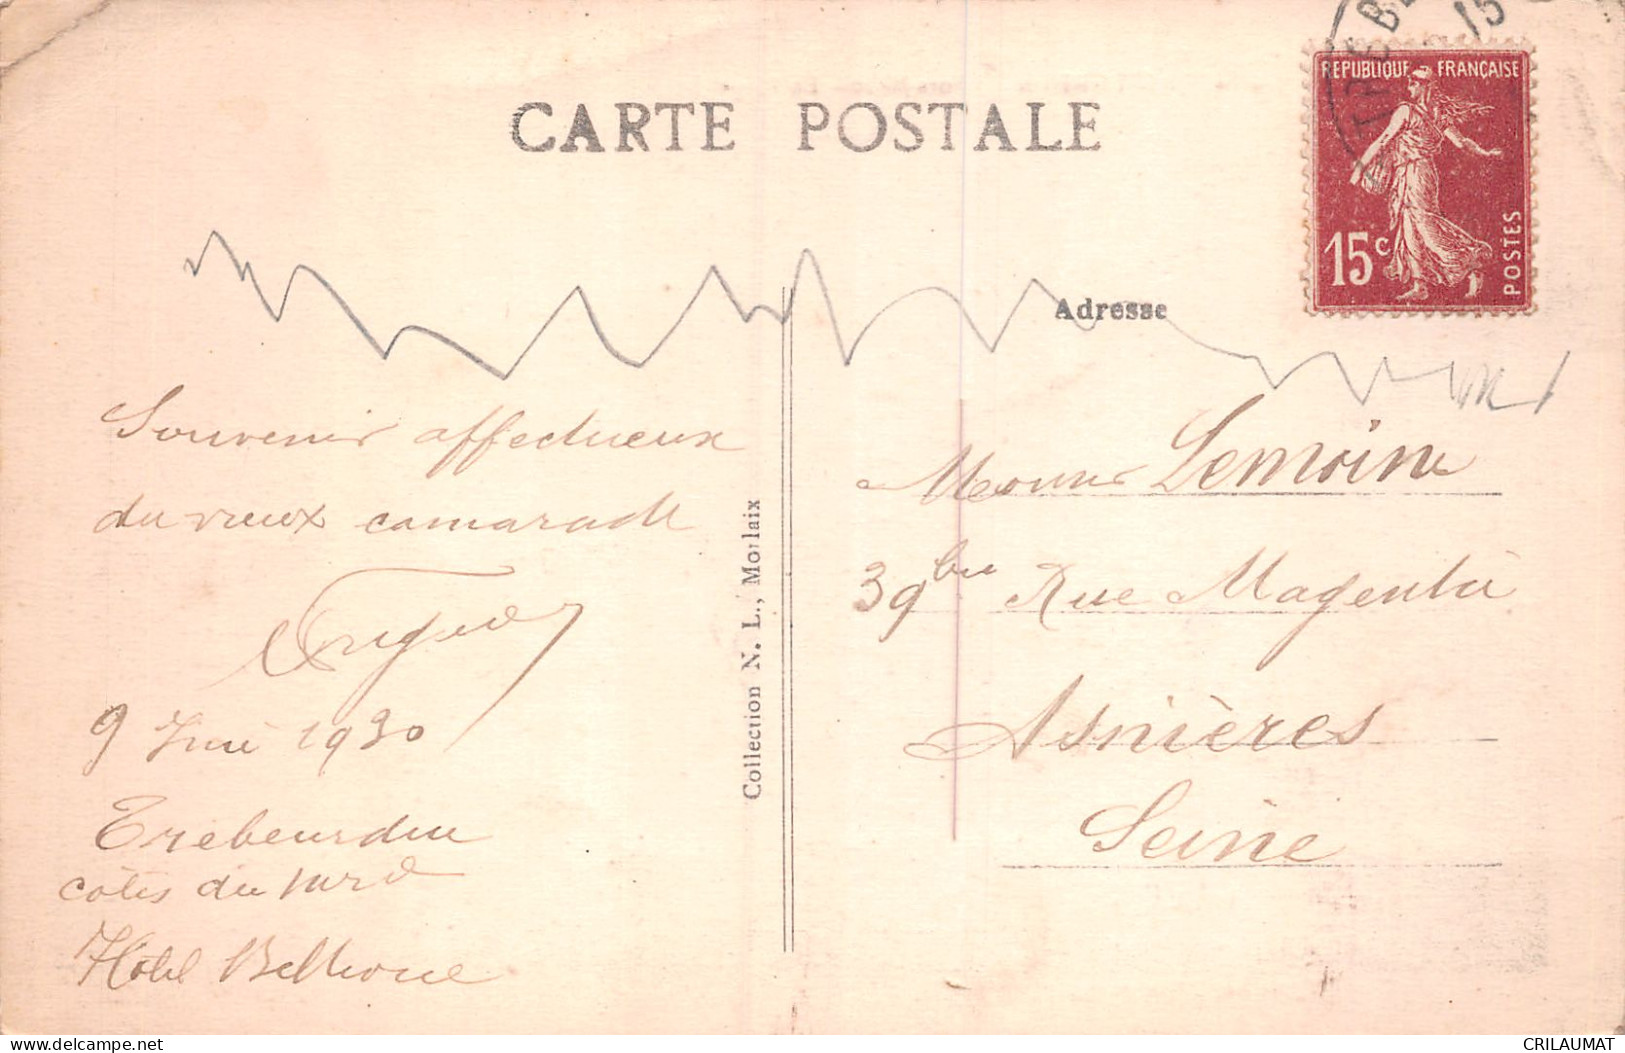 CARTE POSTALE
REPUBLIQUE FRANÇAISE
15c
POSTES
15
Adresse
Souvenir affectueux
du vieux camarade
9 Juin 1930
Trebeurden
côtes du Nord
Hôtel Bellevue
Collection N. L., Morlaix
Monsieur Lemoine
39 bis Rue Magenta
Asnières
Seine
CRILAUMAT